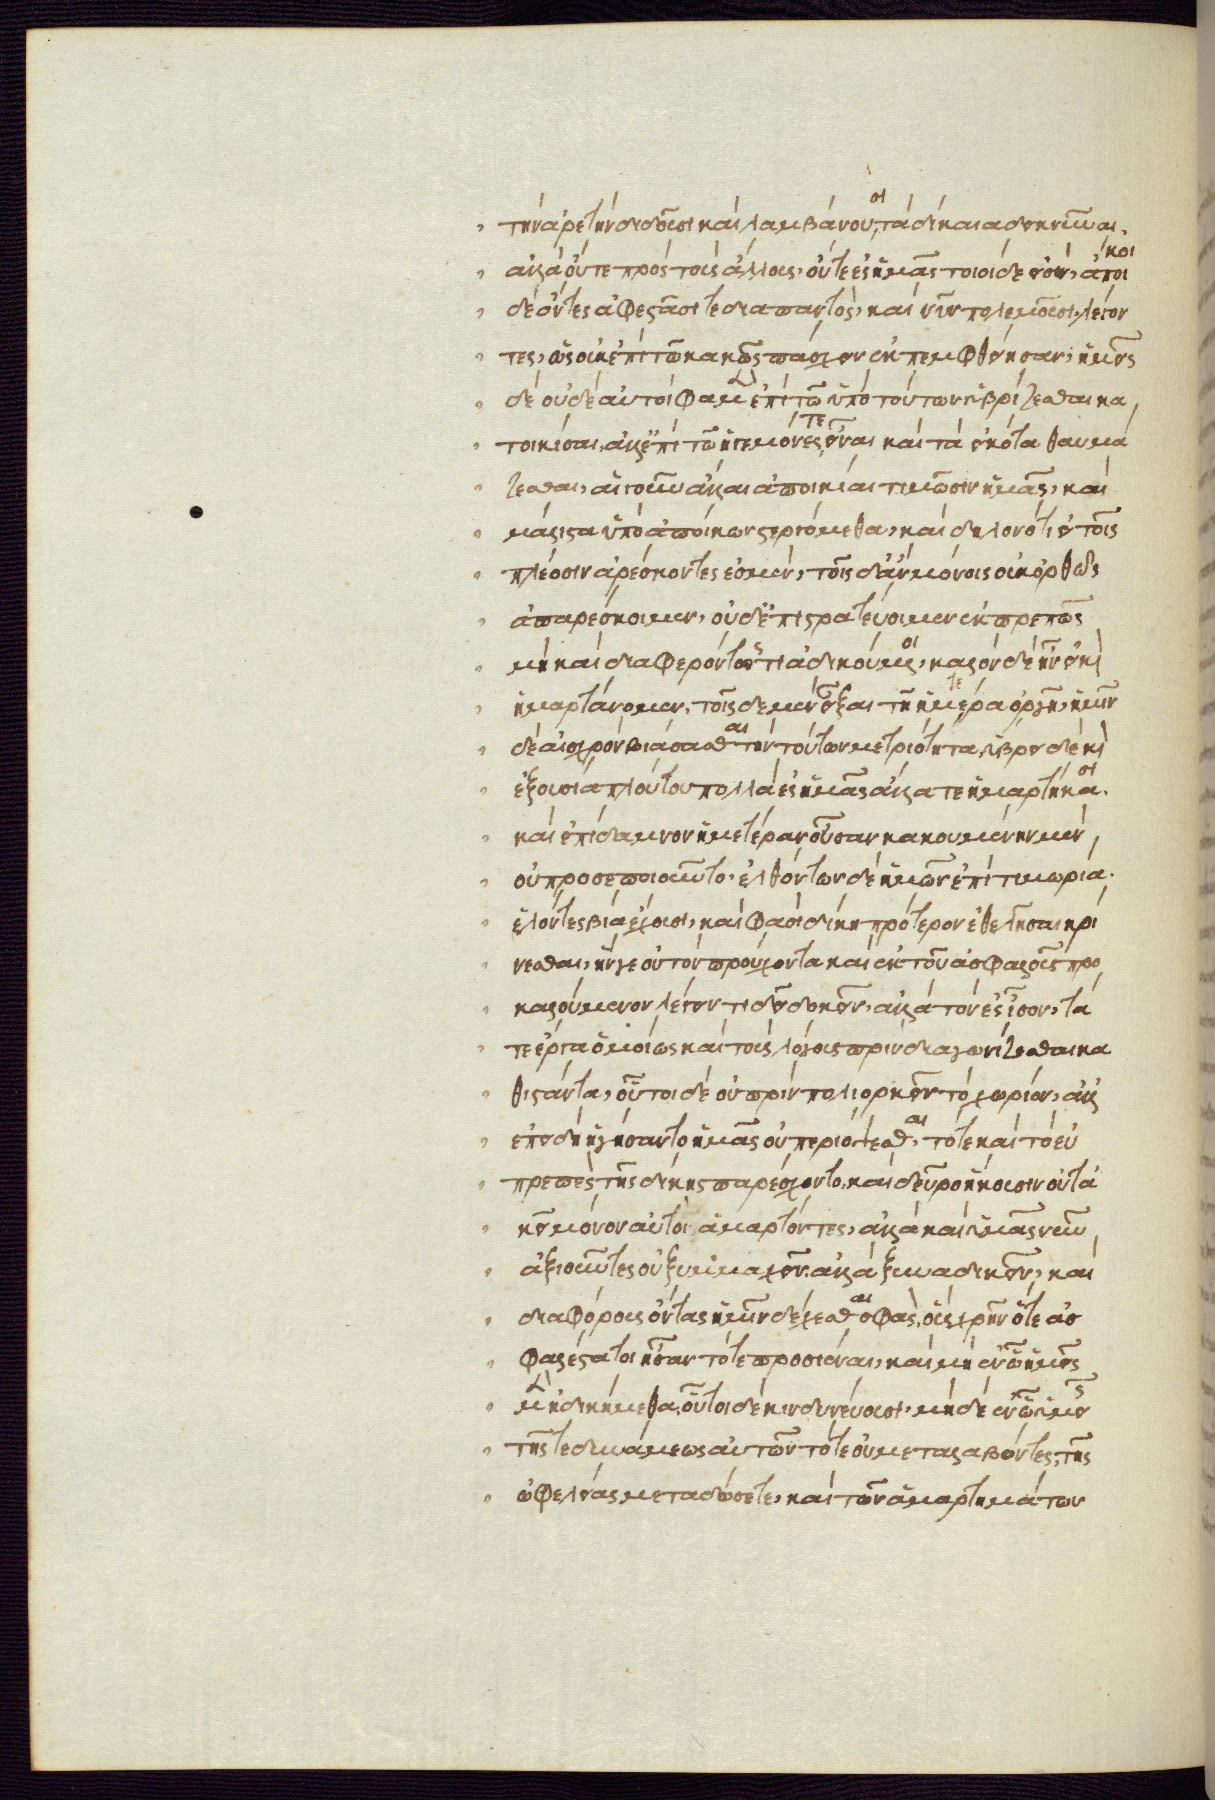 τὴν ἀρετὴν διδοῦσι καὶ λαμβάνουσι, τὰ δίκαια δεικνύναι.
ἀλλὰ οὔτε πρὸς τοὺς ἄλλους, οὔτε ἐς ἡμᾶς τοιοίδε εἰσίν, ἄποικοι
δὲ ὄντες ἀφεστᾶσί τε διαπαντὸς, καὶ νῦν πολεμοῦσι, λέγον
τες, ὡς οὐκ ἐπὶ τῶ κακῶς πάσχειν ἐκπεμφθείησαν, ἡμεῖς
δὲ οὐδὲ αὐτοί φαμεν ἐπὶ τῶ ὑπὸ τούτων ὑβρίζεσθαι κα
τοικίσαι, ἀλλ' ἐπὶ τῶ ἡγεμόνες τε εἶναι καὶ τὰ εἰκότα θαυμά
ζεσθαι, αἱ γοῦν ἄλλαι ἀποικίαι τιμῶσιν ἡμᾶς, καὶ
μάλιστα ὑπὸ ἀποίκων στεργόμεθα, καὶ δηλονότι εἰ τοῖς
πλέοσιν ἀρέσκοντες ἐσμὲν, τοῖς δ' ἂν μόνοις οὐκ ὀρθῶς
ἀπαρέσκοιμεν, οὐδ' ἐπιστρατεύοιμεν ἐκπρεπῶς
μὴ καὶ διαφερόντως τι ἀδικούμενοι, καλὸν δὲ ἦν εἰ καὶ
ἡμαρτάνομεν, τοῖς δε μὲν εἶξαι τῆ ἡμετέρα ὀργῆ, ἡμῖν
δὲ αἰσχρὸν βιάσασθαι τὴν τούτων μετριότητα, ὕβρει δὲ καὶ
ἐξουσία πλούτου πολλὰ ἐς ἡμᾶς ἄλλα τε ἡμαρτήκασι.
καὶ ἐπίδαμνον ἡμετέραν οὖσαν κακουμένην μὲν
οὐ προσεποιοῦντο, ἐλθόντων δὲ ἡμῶν ἐπὶ τιμωρία.
ἑλόντες βία ἔχουσι, καὶ φασὶ δίκη πρότερον ἐθελῆσαι κρί
νεσθαι, ἥν γε οὐ τὸν προύχοντα καὶ ἐκ τοῦ ἀσφαλοῦς προ
καλούμενον λέγειν τι δεῖ δοκεῖν, ἀλλὰ τὸν ἐς ἴσον, τά
τε ἔργα ὁμοίως καὶ τοὺς λόγους πρὶν διαγωνίζεσθαι κα
θιστάντα, οὗτοι δὲ οὐ πρὶν πολιορκεῖν τὸ χωρίον, ἀλλ'
ἐπειδὴ ἡγήσαντο ἡμᾶς οὐ περιόψεσθαι, τότε καὶ τὸ εὐ
πρεπὲς τῆς δίκης παρέσχοντο, καὶ δεῦρο ἥκουσιν οὐ τά
κεῖ μόνον αὐτοὶ ἁμαρτόντες, ἀλλὰ καὶ ὑμᾶς νῦν
ἀξιοῦντες οὐ ξυμμαχεῖν. ἀλλὰ ξυναδικεῖν, καὶ
διαφόρους ὄντας ἡμῖν δέχεσθαι σφᾶς, οὓς χρῆν ὅτε ἀσ
φαλέστατοι ἦσαν τότε προσιέναι, καὶ μὴ ἐν ὧ ἡμεῖς
μὲν ἠδικήμεθα, οὗτοι δὲ κινδυνεύουσι, μὴ δὲ ἐν ὧ ὑμεῖς
τῆς τε δυνάμεως αὐτῶν τότε οὐ μεταλαβόντες, τῆς
ὠφελείας μεταδώσετε, καὶ τῶν ἁμαρτημάτων